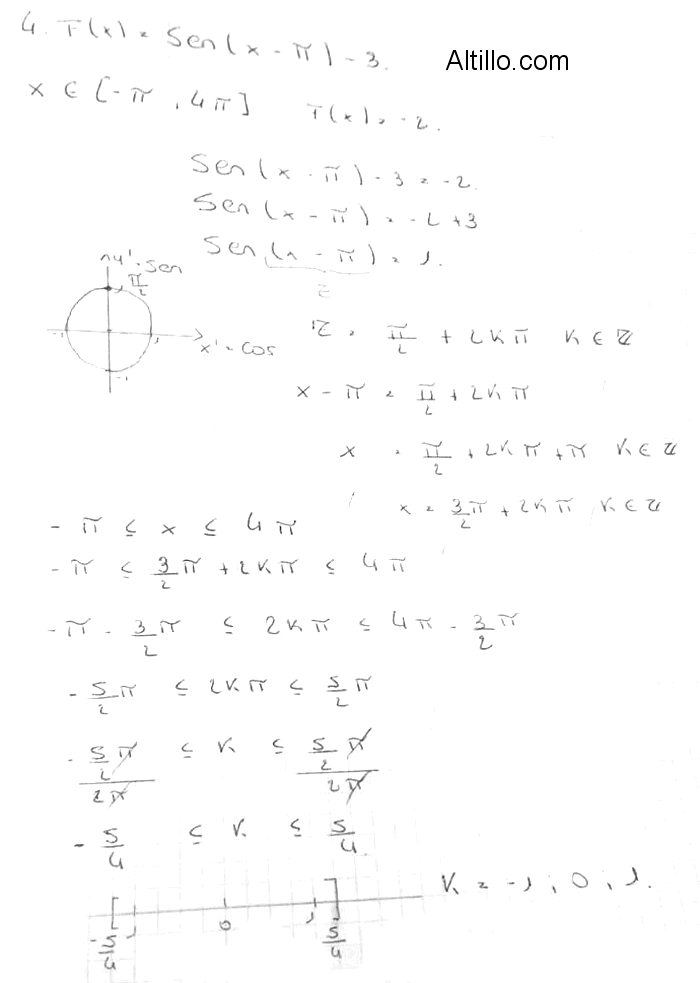 4. T(x) = Sen(x - π) - 3.
Altillo.com
x ∈ [-π, 4π] T(x) = -2.
Sen(x - π) - 3 = -2.
Sen(x - π) = -2 + 3
Sen(x - π) = 1.
z
y' = Sen
π/2
1
-1
x' = cos
z = π/2 + 2kπ k ∈ Z
x - π = π/2 + 2kπ
x = π/2 + 2kπ + π k ∈ Z
x = 3/2 π + 2kπ k ∈ Z
- π ≤ x ≤ 4π
- π ≤ 3/2 π + 2kπ ≤ 4π
- π - 3/2 π ≤ 2kπ ≤ 4π - 3/2 π
- 5/2 π ≤ 2kπ ≤ 5/2 π
- 5/2 π / 2π ≤ k ≤ 5/2 π / 2π
- 5/4 ≤ k ≤ 5/4
k = -1, 0, 1.
-5/4 -1 0 1 5/4